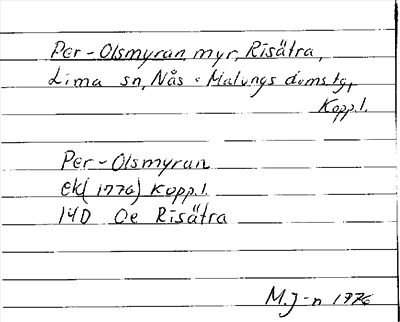 Per-Olsmyran, myr, Risätra,
Lima sn, Nås o Malungs domstg,
Kopp.l.
Per-Olsmyran
ek (1776) Kopp.l.
14D Oe Risätra
M.J-n 1976